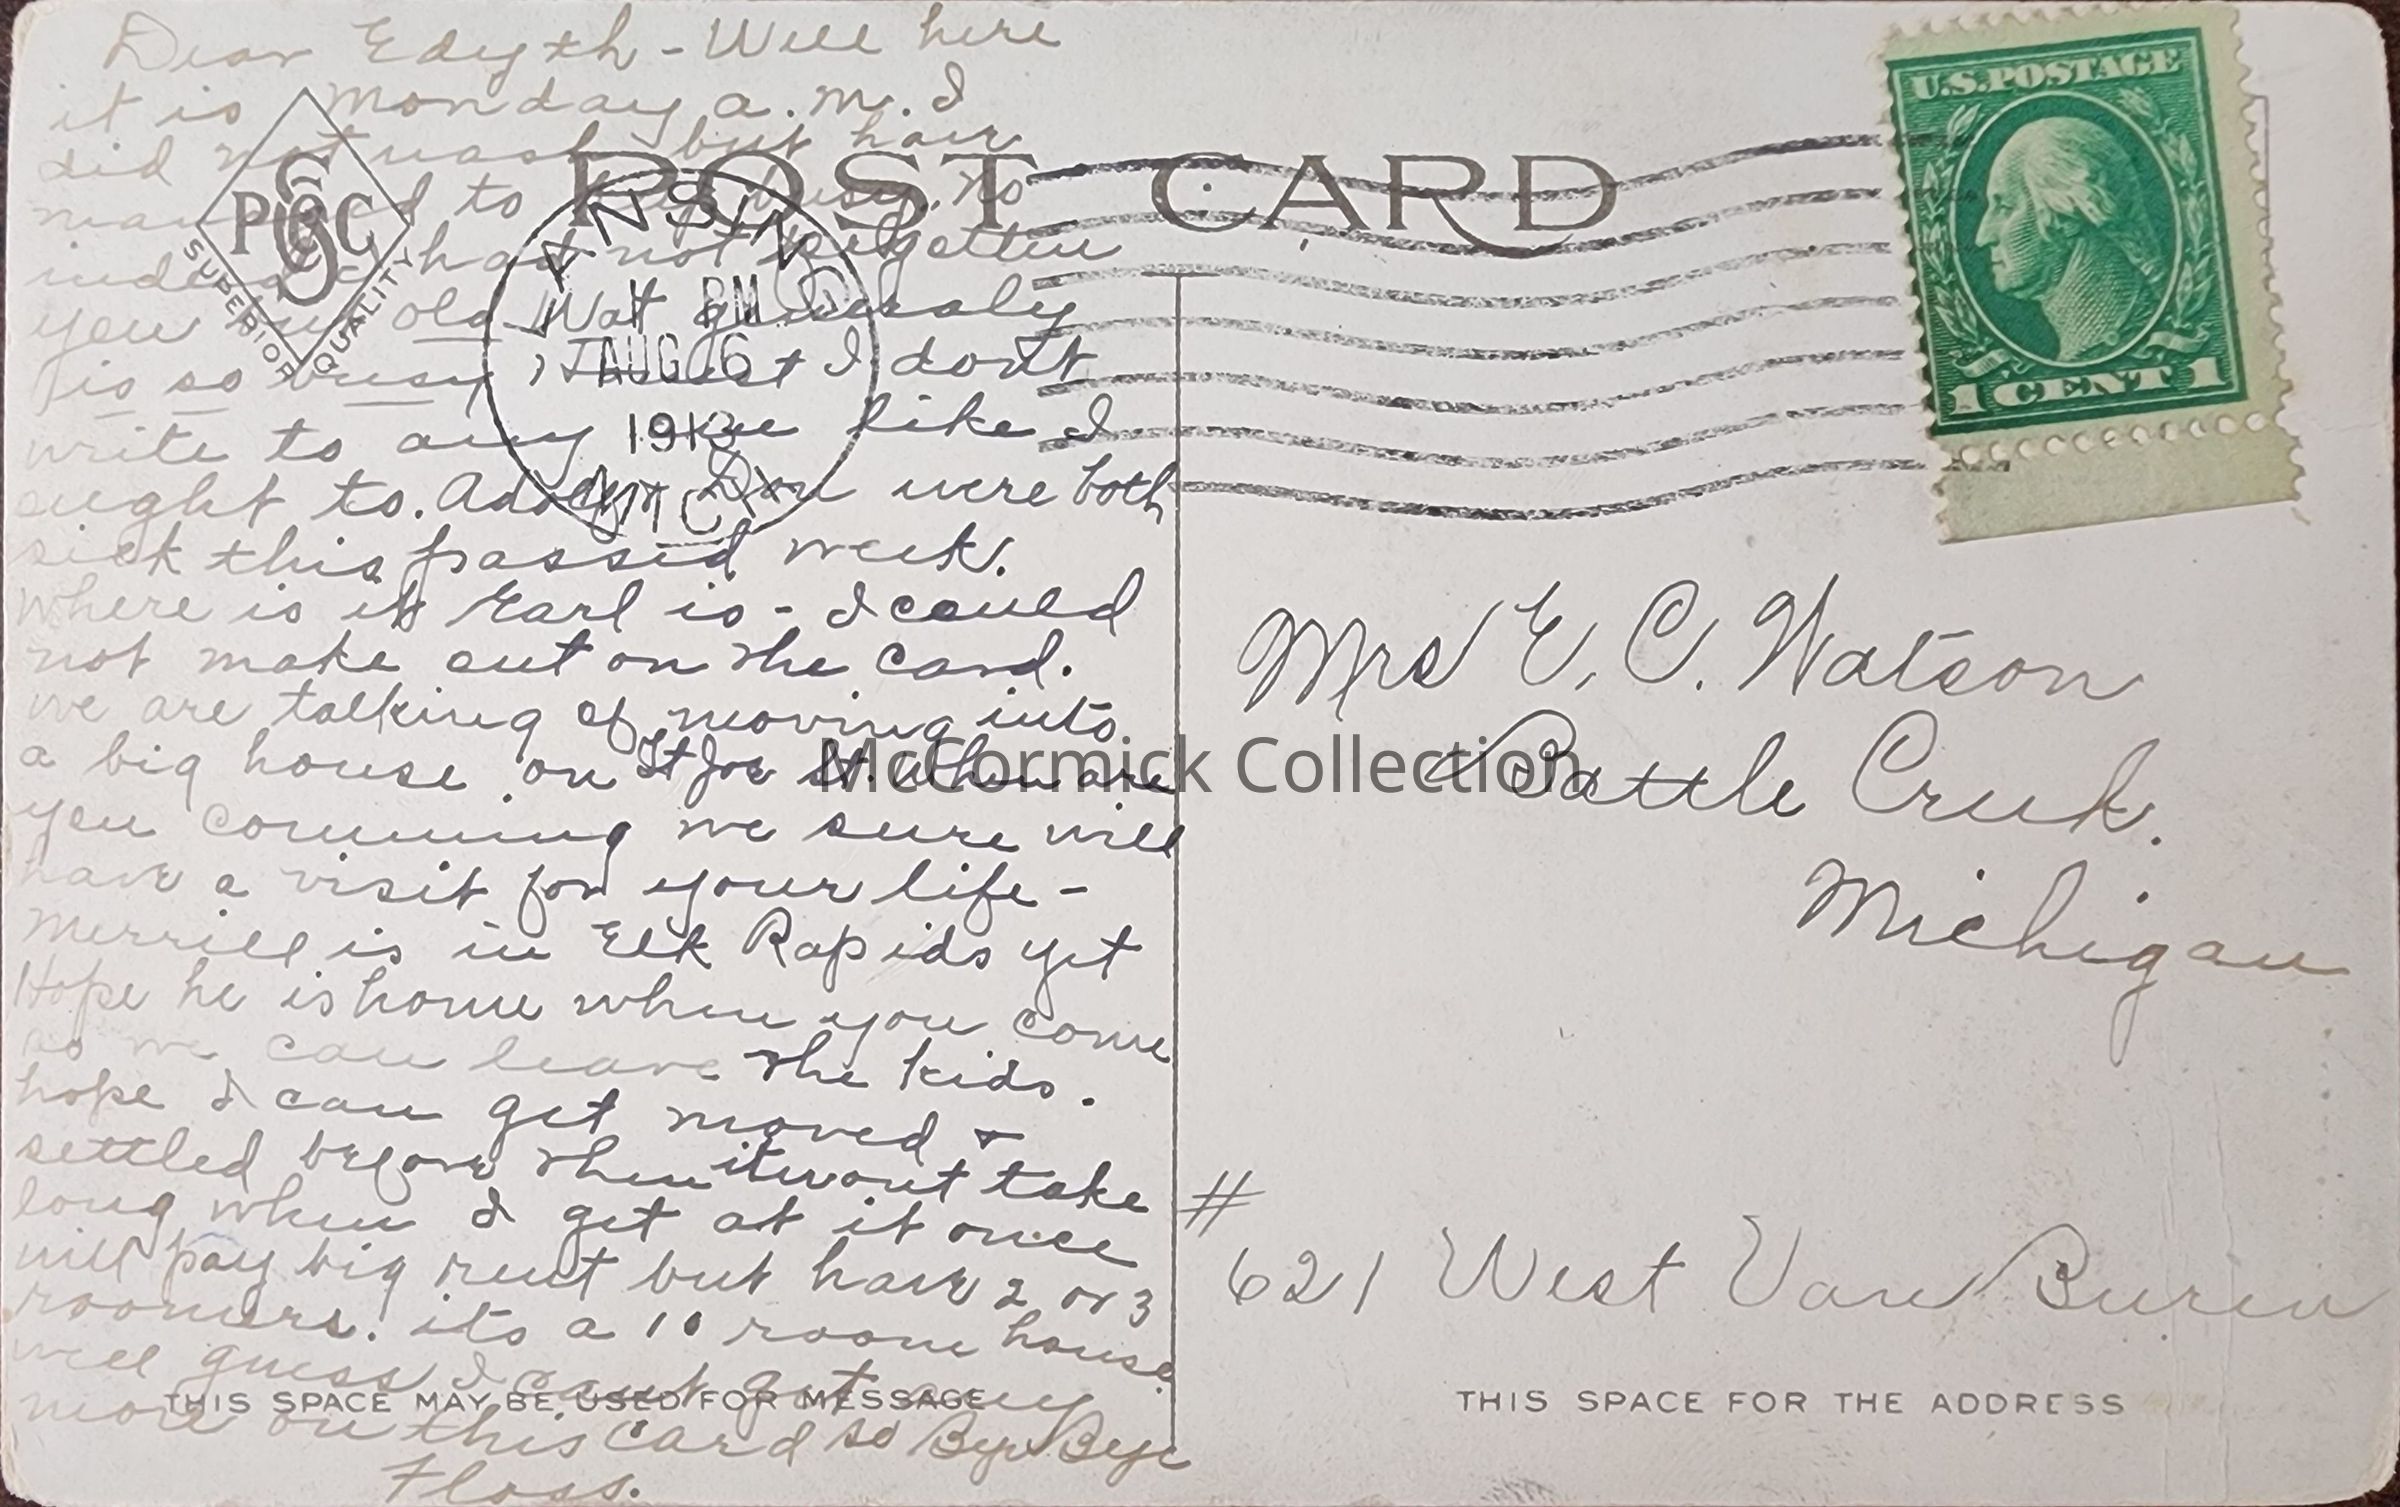 Dear Edyth - Well here
it is Monday a.m. I
did not wash but have
managed to keep busy. No
indeed I had not forgotten
you but old Wat
is so busy, I don't
write to any one like I
ought to. Don were both
sick this passed week.
where is it Earl is - I could
not make out on the card.
we are talking of moving into
a big house on St Joe St. When are
you comming we sure will
have a visit for your life -
Merrill is in Elk Rapids yet
Hope he is home when you come
so we can leave the kids.
hope I can get moved &
settled before then it wont take
long when I get at it once
will pay big rent but have 2 or 3
roomers. its a 10 room house
well guess I cant get any
more on this card so Bye Bye
Floss.
PCC
SUPERIOR QUALITY
POST CARD
LANSING
PM
AUG 6
1913
MICH
U.S. POSTAGE
1 CENT 1
Mrs E. C. Watson
Battle Creek.
Michigan
#
621 West Van Buren
THIS SPACE MAY BE USED FOR MESSAGE
THIS SPACE FOR THE ADDRESS
McCormick Collection